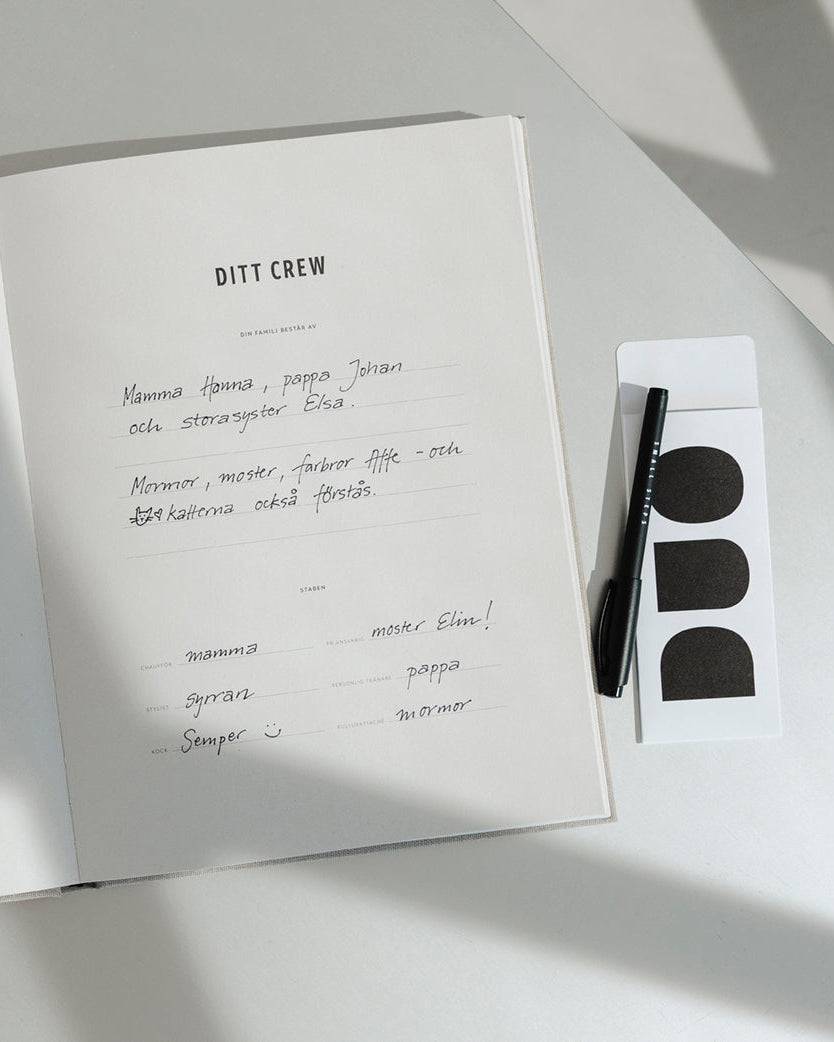 DITT CREW
DIN FAMILJ BESTÅR AV
Mamma Hanna, pappa Johan
och storasyster Elsa.
Mormor, moster, farbror Affe - och
katterna också förstås.
STABEN
CHAUFFÖR mamma
PR-ANSVARIG moster Elin!
STYLIST syrran
PERSONLIG TRÄNARE pappa
KOCK Semper :)
KULTURATTACHÉ mormor
SMALL STEPS
DUO